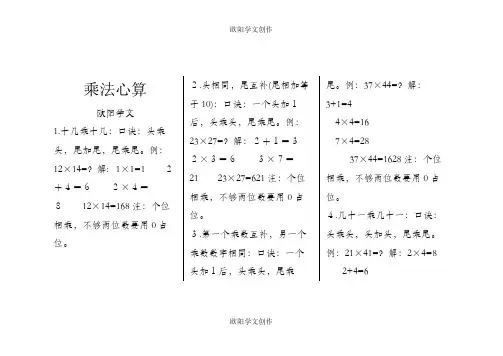 欧阳学文创作
乘法心算
欧阳学文
1.十几乘十几：口诀：头乘
头，尾加尾，尾乘尾。例：
12×14=？解：1×1=1 2
＋4＝6 2×4＝
8 12×14=168 注：个位
相乘，不够两位数要用 0 占
位。
2.头相同，尾互补(尾相加等
于 10)：口诀：一个头加 1
后，头乘头，尾乘尾。例：
23×27=？解：2＋1＝3
2×3＝6 3×7＝
21 23×27=621 注：个位
相乘，不够两位数要用 0 占
位。
3.第一个乘数互补，另一个
乘数数字相同：口诀：一个
头加 1 后，头乘头，尾乘
尾。例：37×44=？解：
3+1=4
4×4=16
7×4=28
37×44=1628 注：个位
相乘，不够两位数要用 0 占
位。
4.几十一乘几十一：口诀：
头乘头，头加头，尾乘尾。
例：21×41=？解：2×4=8
2+4=6
欧阳学文创作